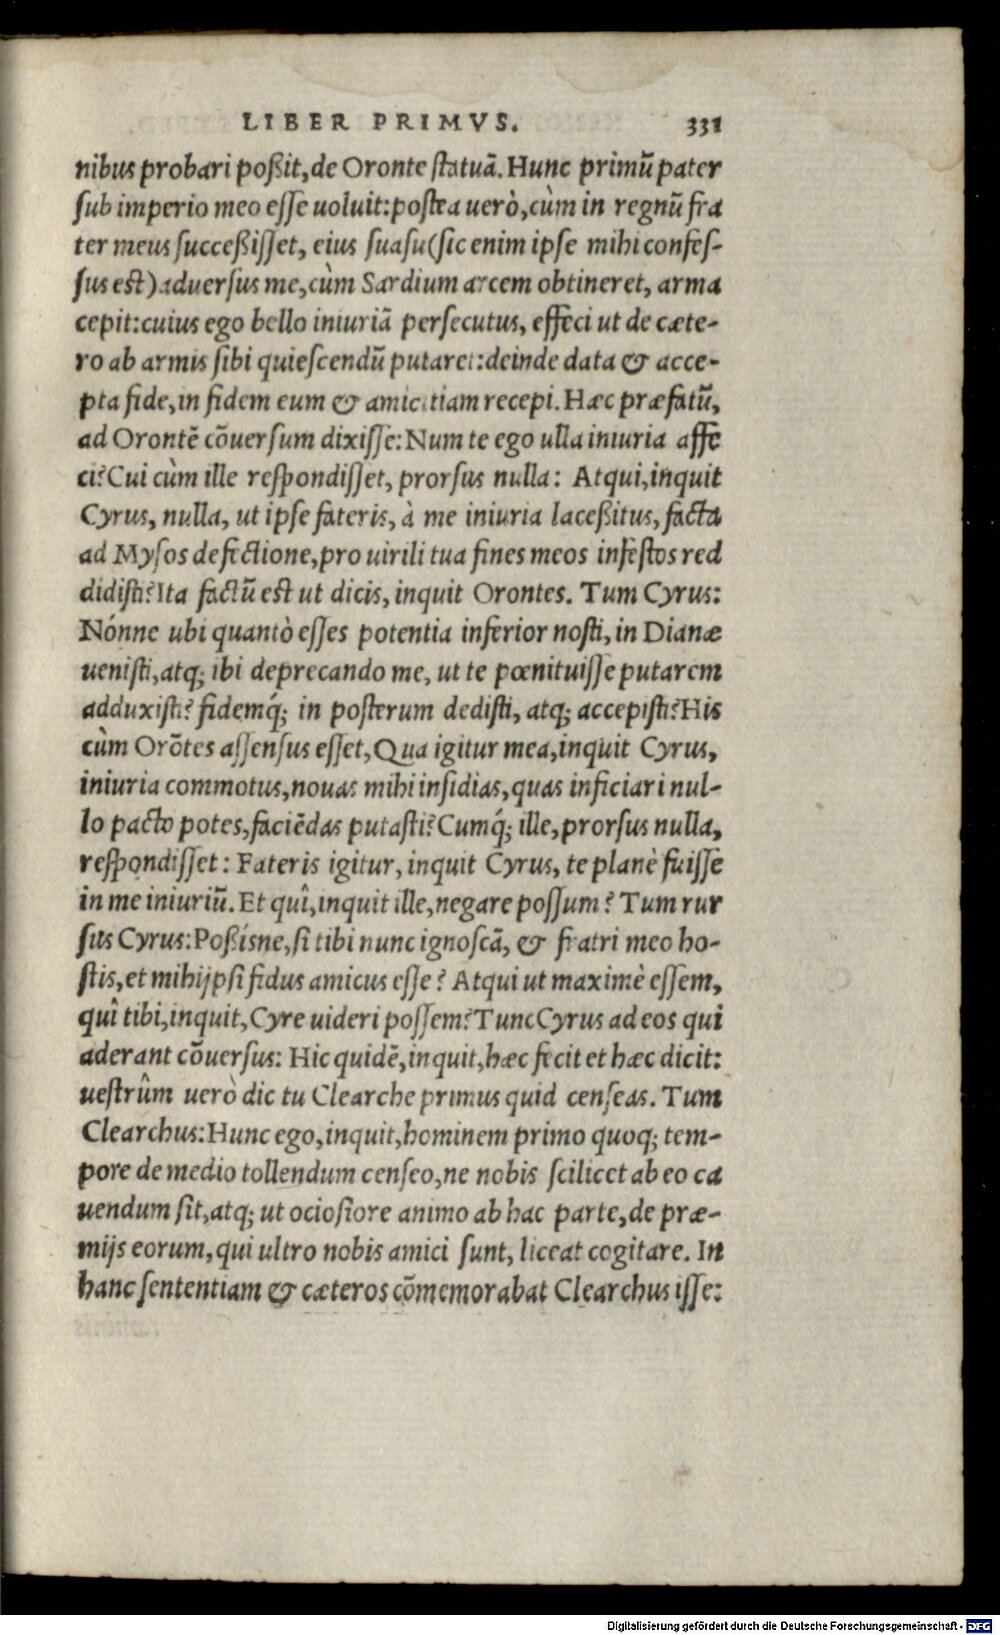 LIBER PRIMVS. 331
nibus probari poßit, de Oronte statuā. Hunc primũ pater
sub imperio meo esse uoluit: postea uerò, cùm in regnũ fra
ter meus succeßisset, eius suasu (sic enim ipse mihi confes-
sus est) aduersus me, cùm Sardium arcem obtineret, arma
cepit: cuius ego bello iniuriā persecutus, effeci ut de cæte-
ro ab armis sibi quiescendũ putaret: deinde data & acce-
pta fide, in fidem eum & amicitiam recepi. Hæc præfatũ,
ad Orontē cōuersum dixisse: Num te ego ulla iniuria affe
ci? Cui cùm ille respondisset, prorsus nulla: Atqui, inquit
Cyrus, nulla, ut ipse fateris, à me iniuria laceßitus, facta
ad Mysos defectione, pro uirili tua fines meos infestos red
didisti? Ita factũ est ut dicis, inquit Orontes. Tum Cyrus:
Nónne ubi quantò esses potentia inferior nosti, in Dianæ
uenisti, atq; ibi deprecando me, ut te pœnituisse putarem
adduxisti? fidemq́; in posterum dedisti, atq; accepisti? His
cùm Orōtes assensus esset, Qua igitur mea, inquit Cyrus,
iniuria commotus, nouas mihi insidias, quas inficiari nul-
lo pacto potes, faciēdas putasti? Cumq́; ille, prorsus nulla,
respondisset: Fateris igitur, inquit Cyrus, te planè fuisse
in me iniuriũ. Et quî, inquit ille, negare possum? Tum rur
sus Cyrus: Poßísne, si tibi nunc ignoscā, & fratri meo ho-
stis, et mihijpsi fidus amicus esse? Atqui ut maximè essem,
quî tibi, inquit, Cyre uideri possem? Tunc Cyrus ad eos qui
aderant cōuersus: Hic quidē, inquit, hæc fecit et hæc dicit:
uestrûm uerò dic tu Clearche primus quid censeas. Tum
Clearchus: Hunc ego, inquit, hominem primo quoq; tem-
pore de medio tollendum censeo, ne nobis scilicet ab eo ca
uendum sit, atq; ut ociosiore animo ab hac parte, de præ-
mijs eorum, qui ultro nobis amici sunt, liceat cogitare. In
hanc sententiam & cæteros cōmemorabat Clearchus isse:
Digitalisierung gefördert durch die Deutsche Forschungsgemeinschaft - DFG